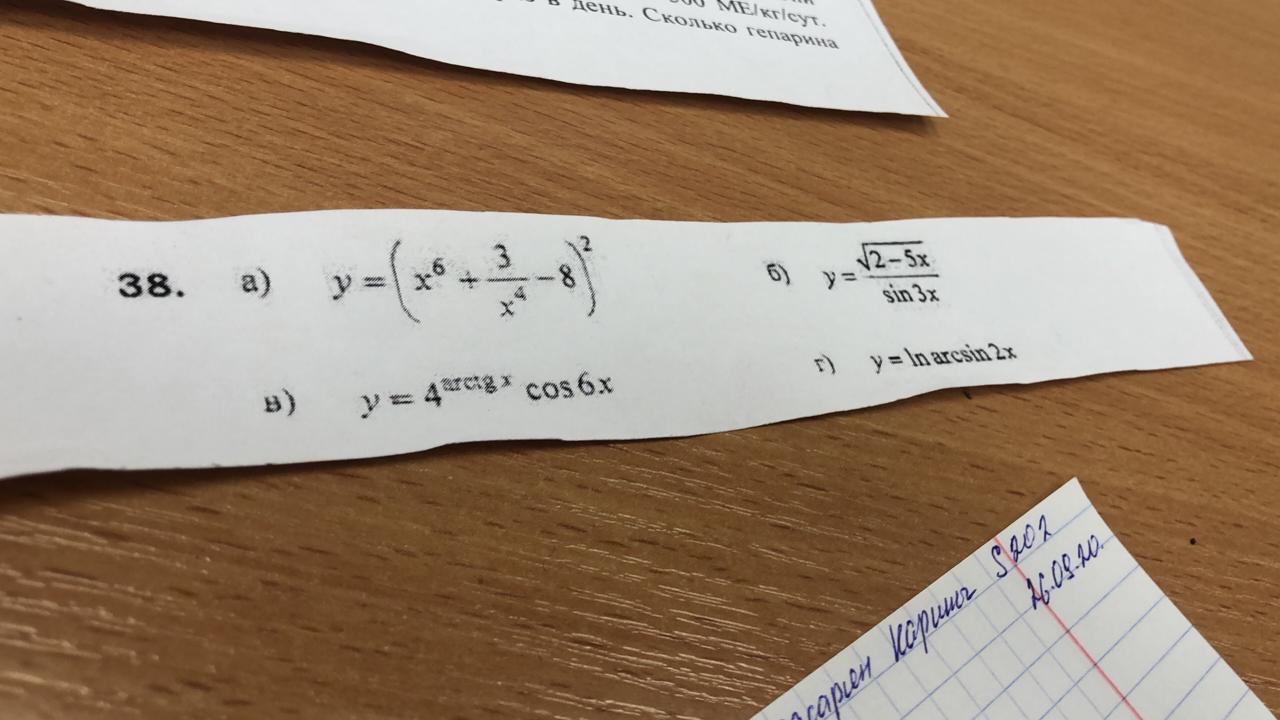 МЕ/кг/сут.
в день. Сколько гепарина
38. а) y = (x⁶ + 3/x⁴ − 8)² б) y = √(2−5x)/sin 3x
в) y = 4^(arctg x) cos 6x г) y = ln arcsin 2x
Карины S202
26.09.20.